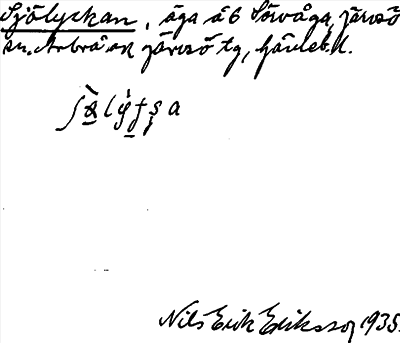 Sjölyckan, äga å 6 Sörvåga, Järvsö
sn. Arbrå ok Järvsö tg, Gävleb. l.
Nils Erik Eriksson 1935.